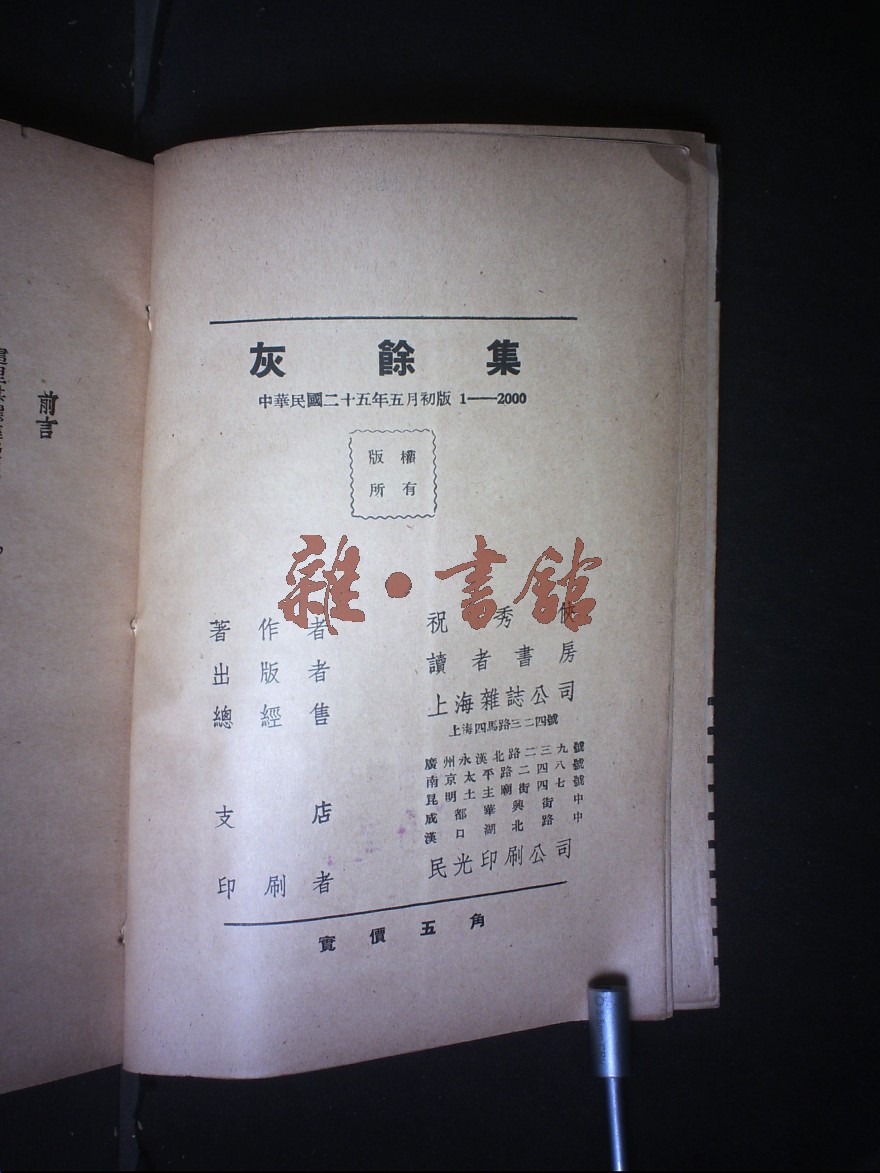 灰餘集
中華民國二十五年五月初版 1——2000
版權
所有
雜·書館
著作者 祝秀俠
出版者 讀者書房
總經售 上海雜誌公司
上海四馬路三二四號
支店
廣州永漢北路二三九號
南京太平路二四八號
昆明土主廟街四七號
成都華興街中
漢口湖北路中
印刷者 民光印刷公司
實價五角
前言